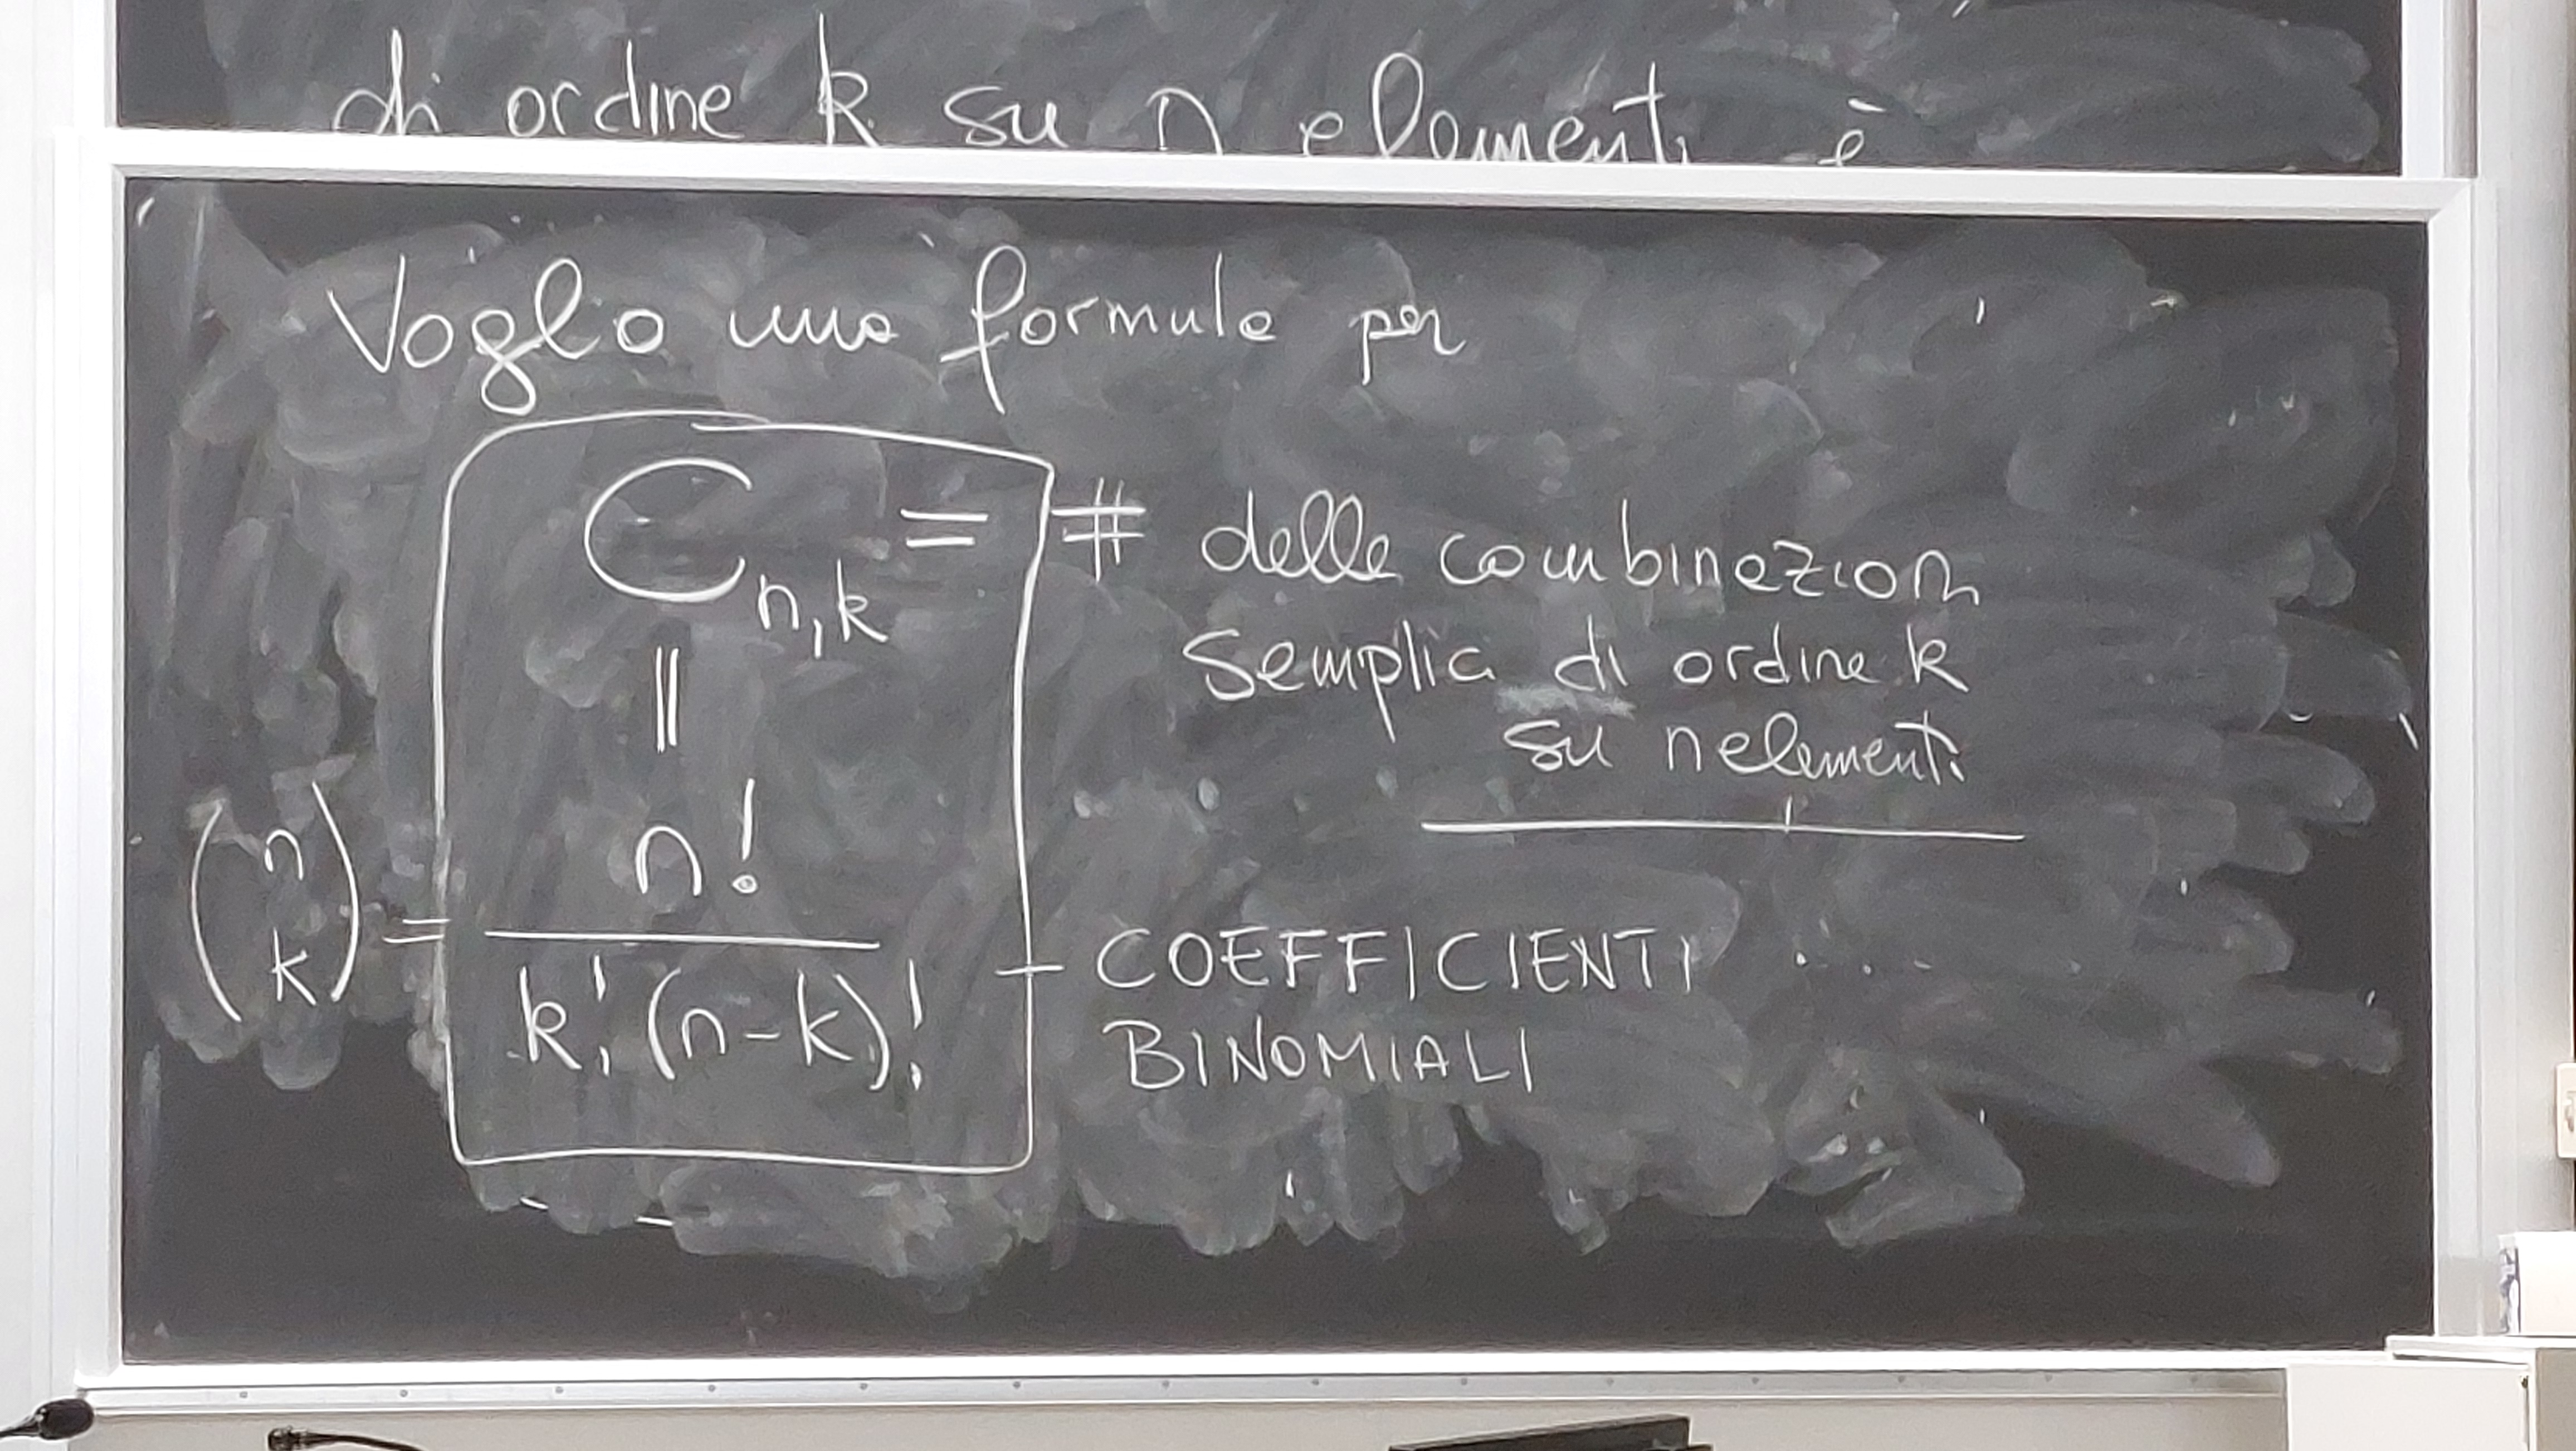 di ordine k su n elementi è
Voglio una formula per
C_{n,k} = # delle combinazioni
semplici di ordine k
su n elementi
||
\binom{n}{k} = \frac{n!}{k!(n-k)!}
COEFFICIENTI ....
BINOMIALI